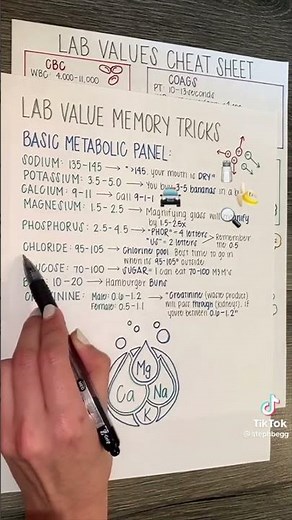 LAB VALUES CHEAT SHEET
CBC
WBC: 4,000-11,000
COAGS
PT: 10-13 seconds
LAB VALUE MEMORY TRICKS
BASIC METABOLIC PANEL:
SODIUM: 135-145 → ">145, your mouth is DRY"
POTASSIUM: 3.5-5.0 → You buy 3-5 bananas in a
CALCIUM: 9-11 → Call 9-1-1
MAGNESIUM: 1.5-2.5 → Magnifying glass will
by 1.5-2.5x
PHOSPHORUS: 2.5-4.5 → "PHOR" = 4 letters
"US" = 2 letters
Remember the 0.5
CHLORIDE: 95-105 → Chlorine pool. Best time to go in
when its 95-105° outside
GLUCOSE: 70-100 → SUGAR = I can eat 70-100 M&M's
10-20 → Hamburger Buns
Male: 0.6-1.2 → "Creatinine (waste product)
Female: 0.5-1.1
will pass through (kidneys), if
you're between 0.6-1.2"
Mg
Ca
Na
K
TikTok